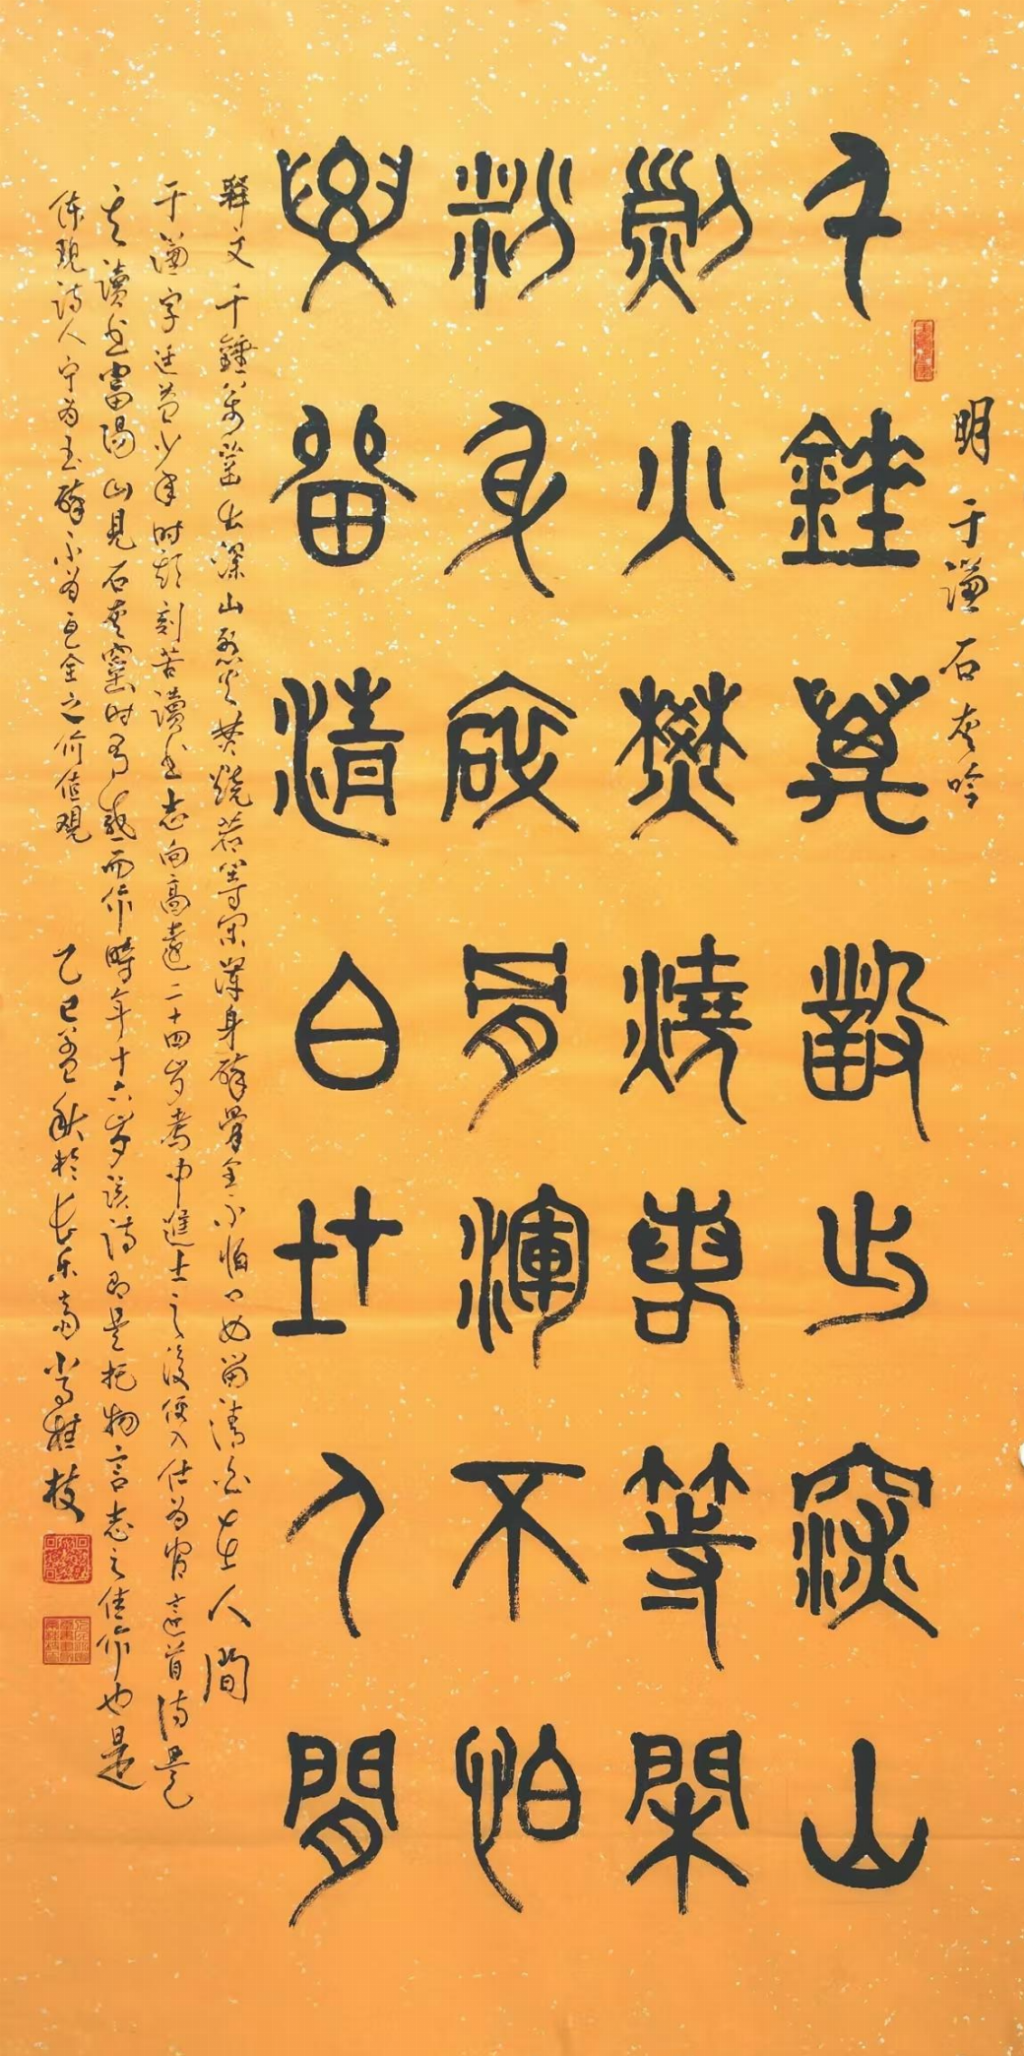 明 于謙 石灰吟
千錘萬鑿出深山
烈火焚燒若等閑
粉身碎骨渾不怕
要留清白在人間
释文 千錘萬鑿出深山烈火焚燒若等閑渾身碎骨全不怕要留清白在人間
于謙字廷益少年时期刻苦讀书志向高遠二十四岁考中進士之後便入仕为官這首诗是
其讀书富陽山見石灰窯时有感而作時年十六岁该诗即是托物言志之佳作也是
体现诗人宁为玉碎不为瓦全之价值观 乙巳孟秋於长乐斋 桂枝